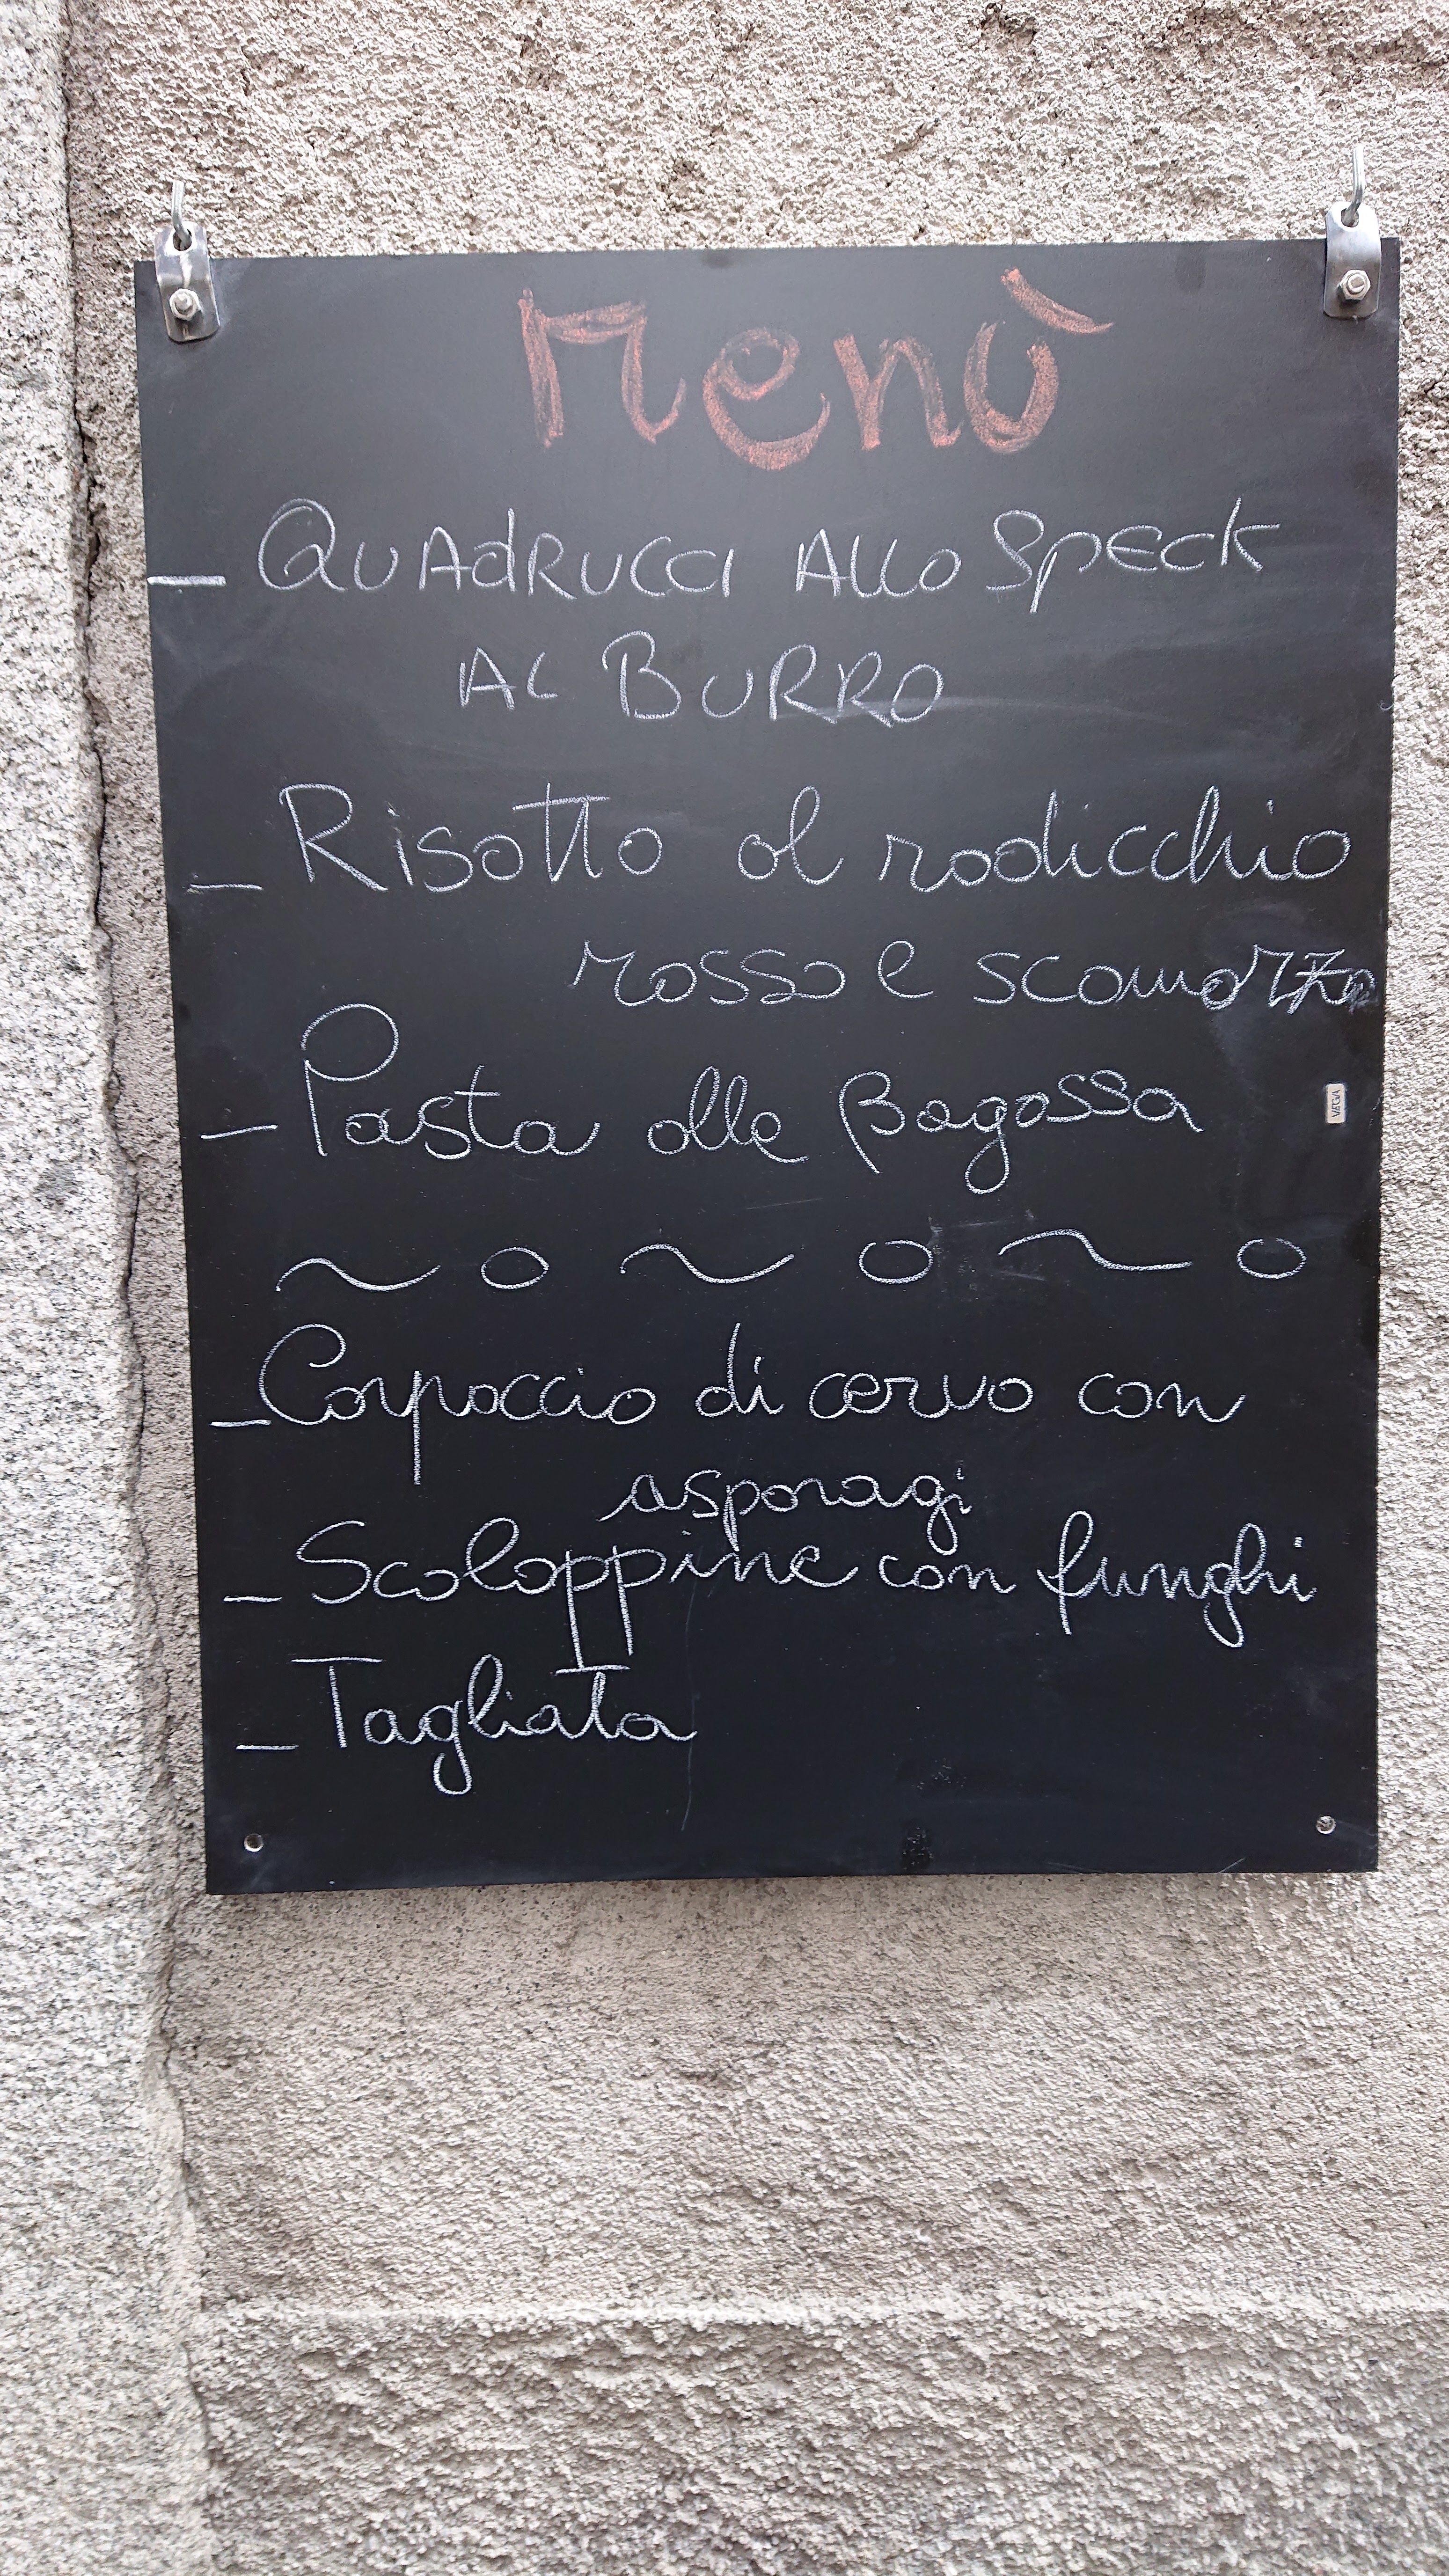 Menù
- QUAdRUCCI ALLO SPECK
AL BURRO
- Risotto al radicchio
rosso e scamorza
- Pasta alle Bagossa
~ o ~ o ~ o
- Carpaccio di cervo con
asparagi
- Scaloppine con funghi
- Tagliata
VEGA